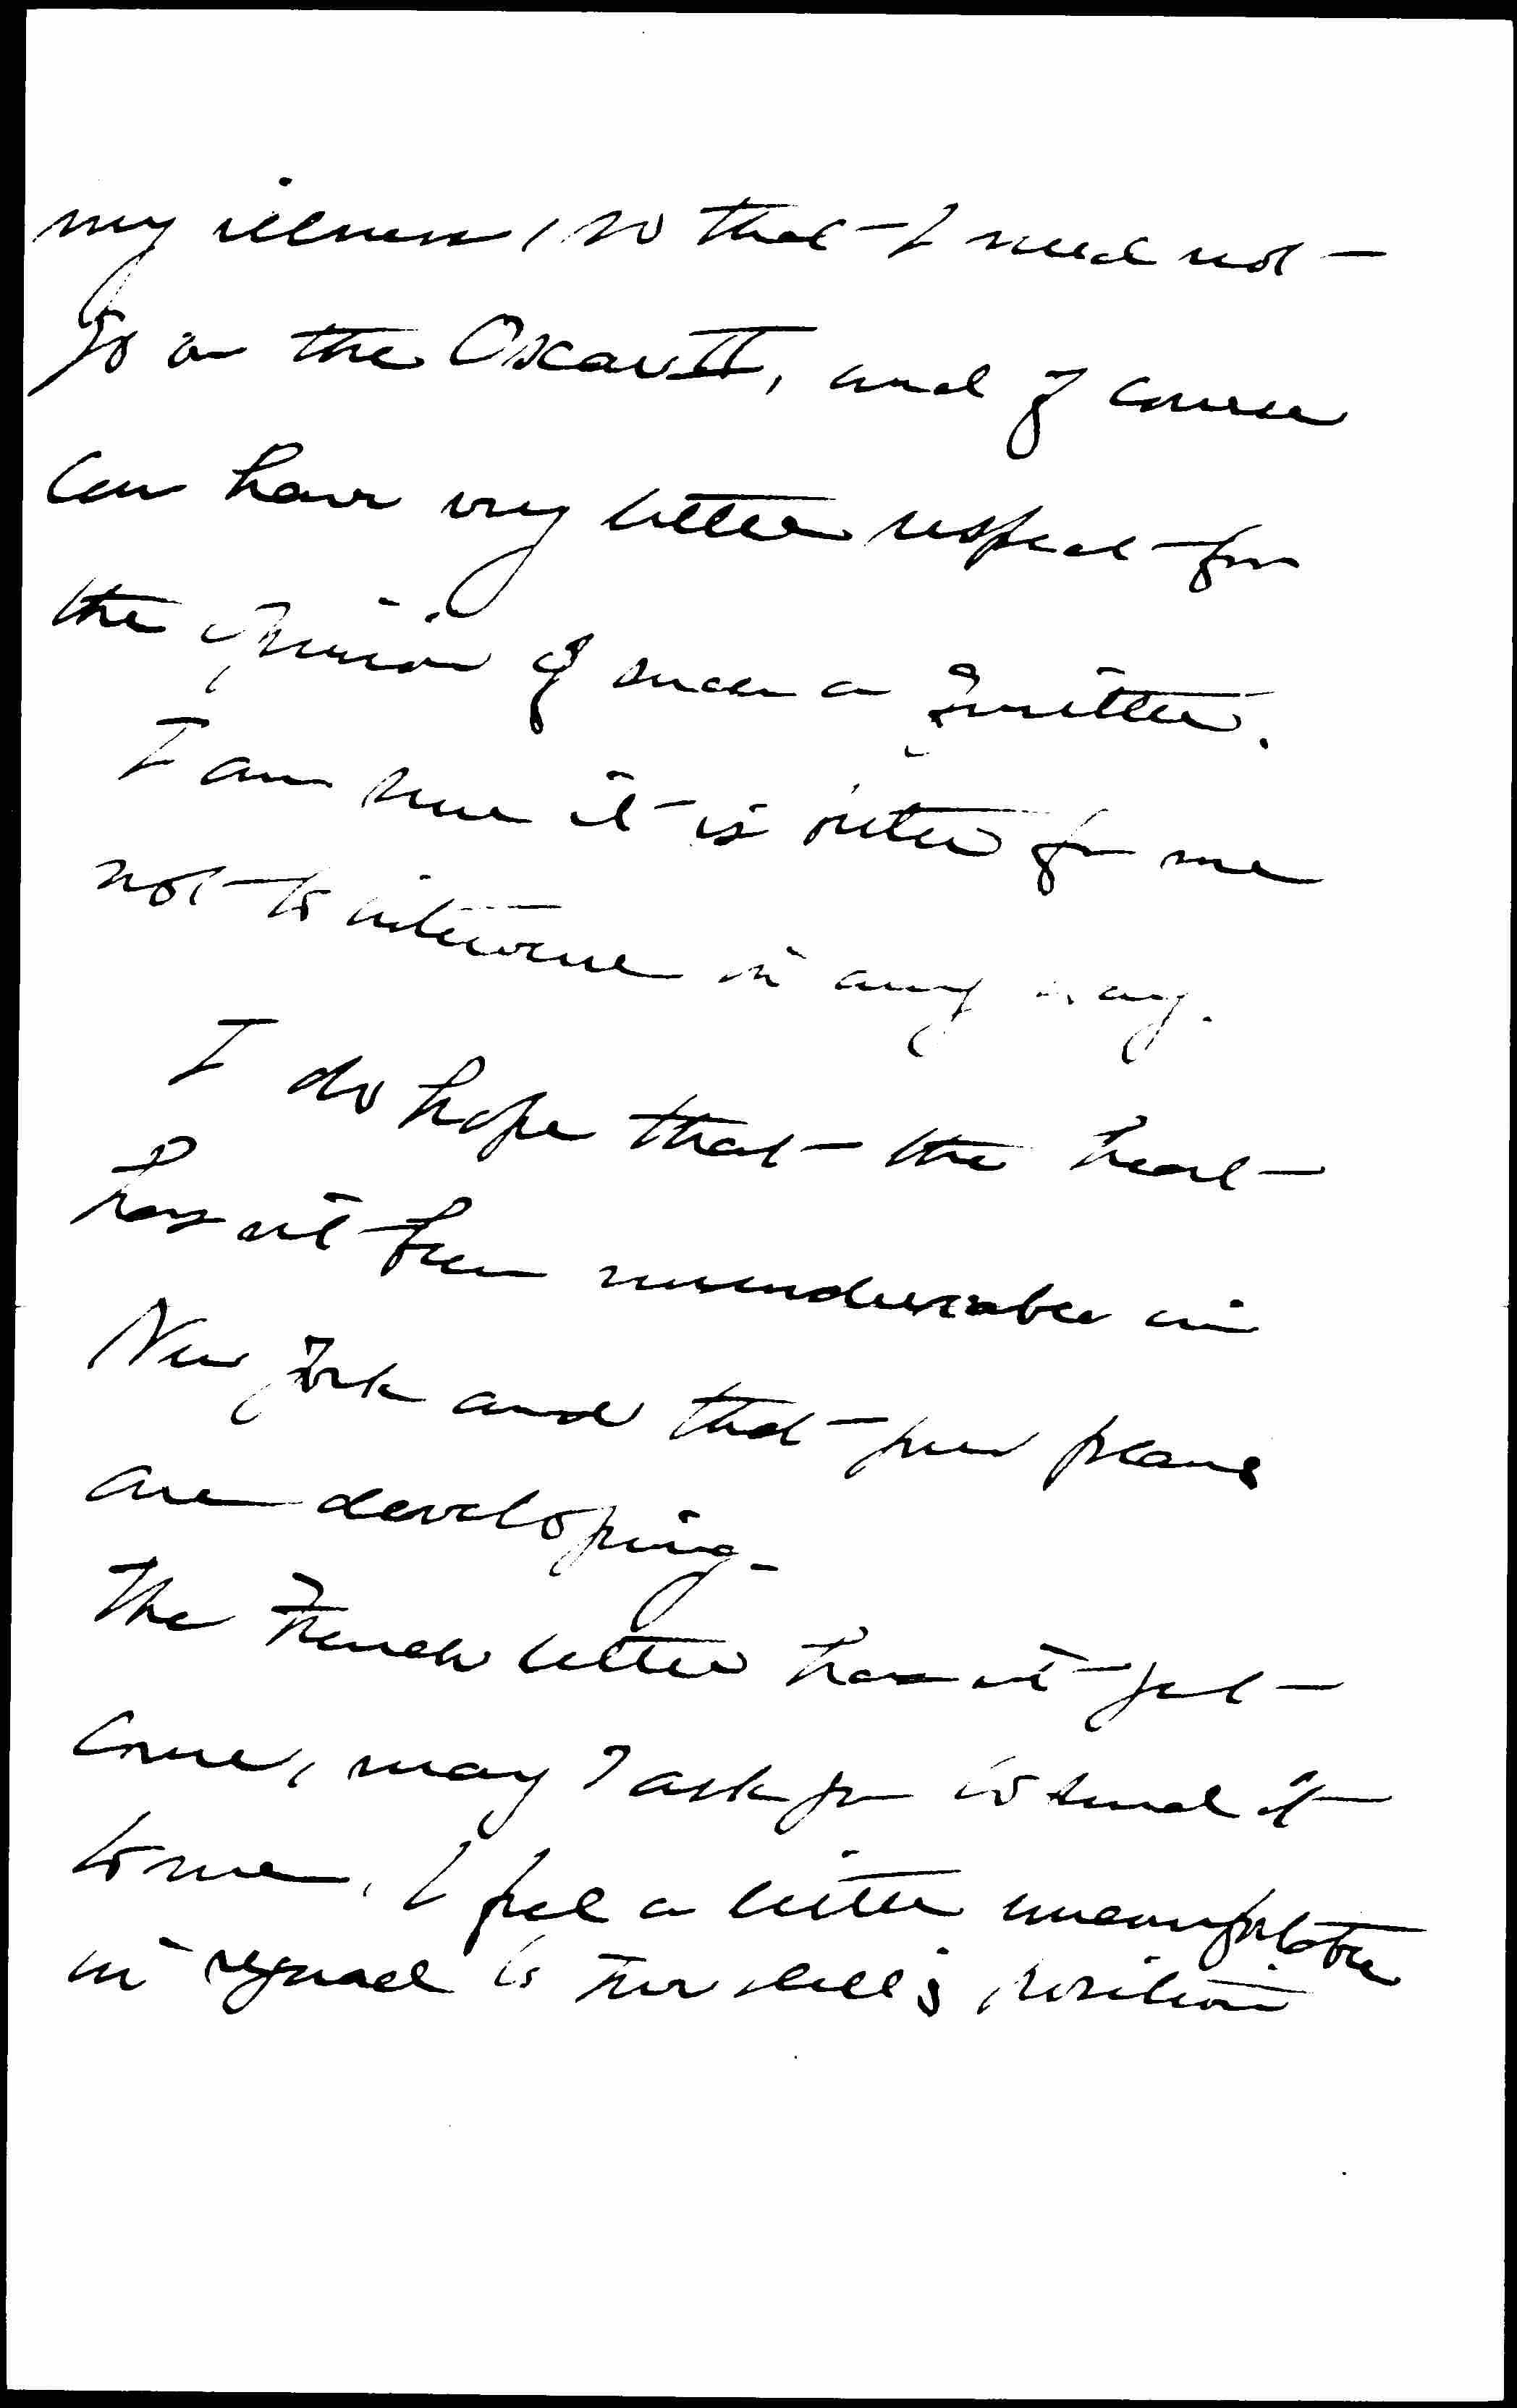 my illness, so that I need not
go on the Oscar II, and of course
can have very little respect for
the opinion of such a quitter.
I am sure it is better for me
not to intervene in any way.
I do hope that the heat
has not been unendurable in
New York and that your plans
are developing.
The French letter has not yet
come, may I ask you to send it
to me. I feel a little uncomfortable
in regard to position